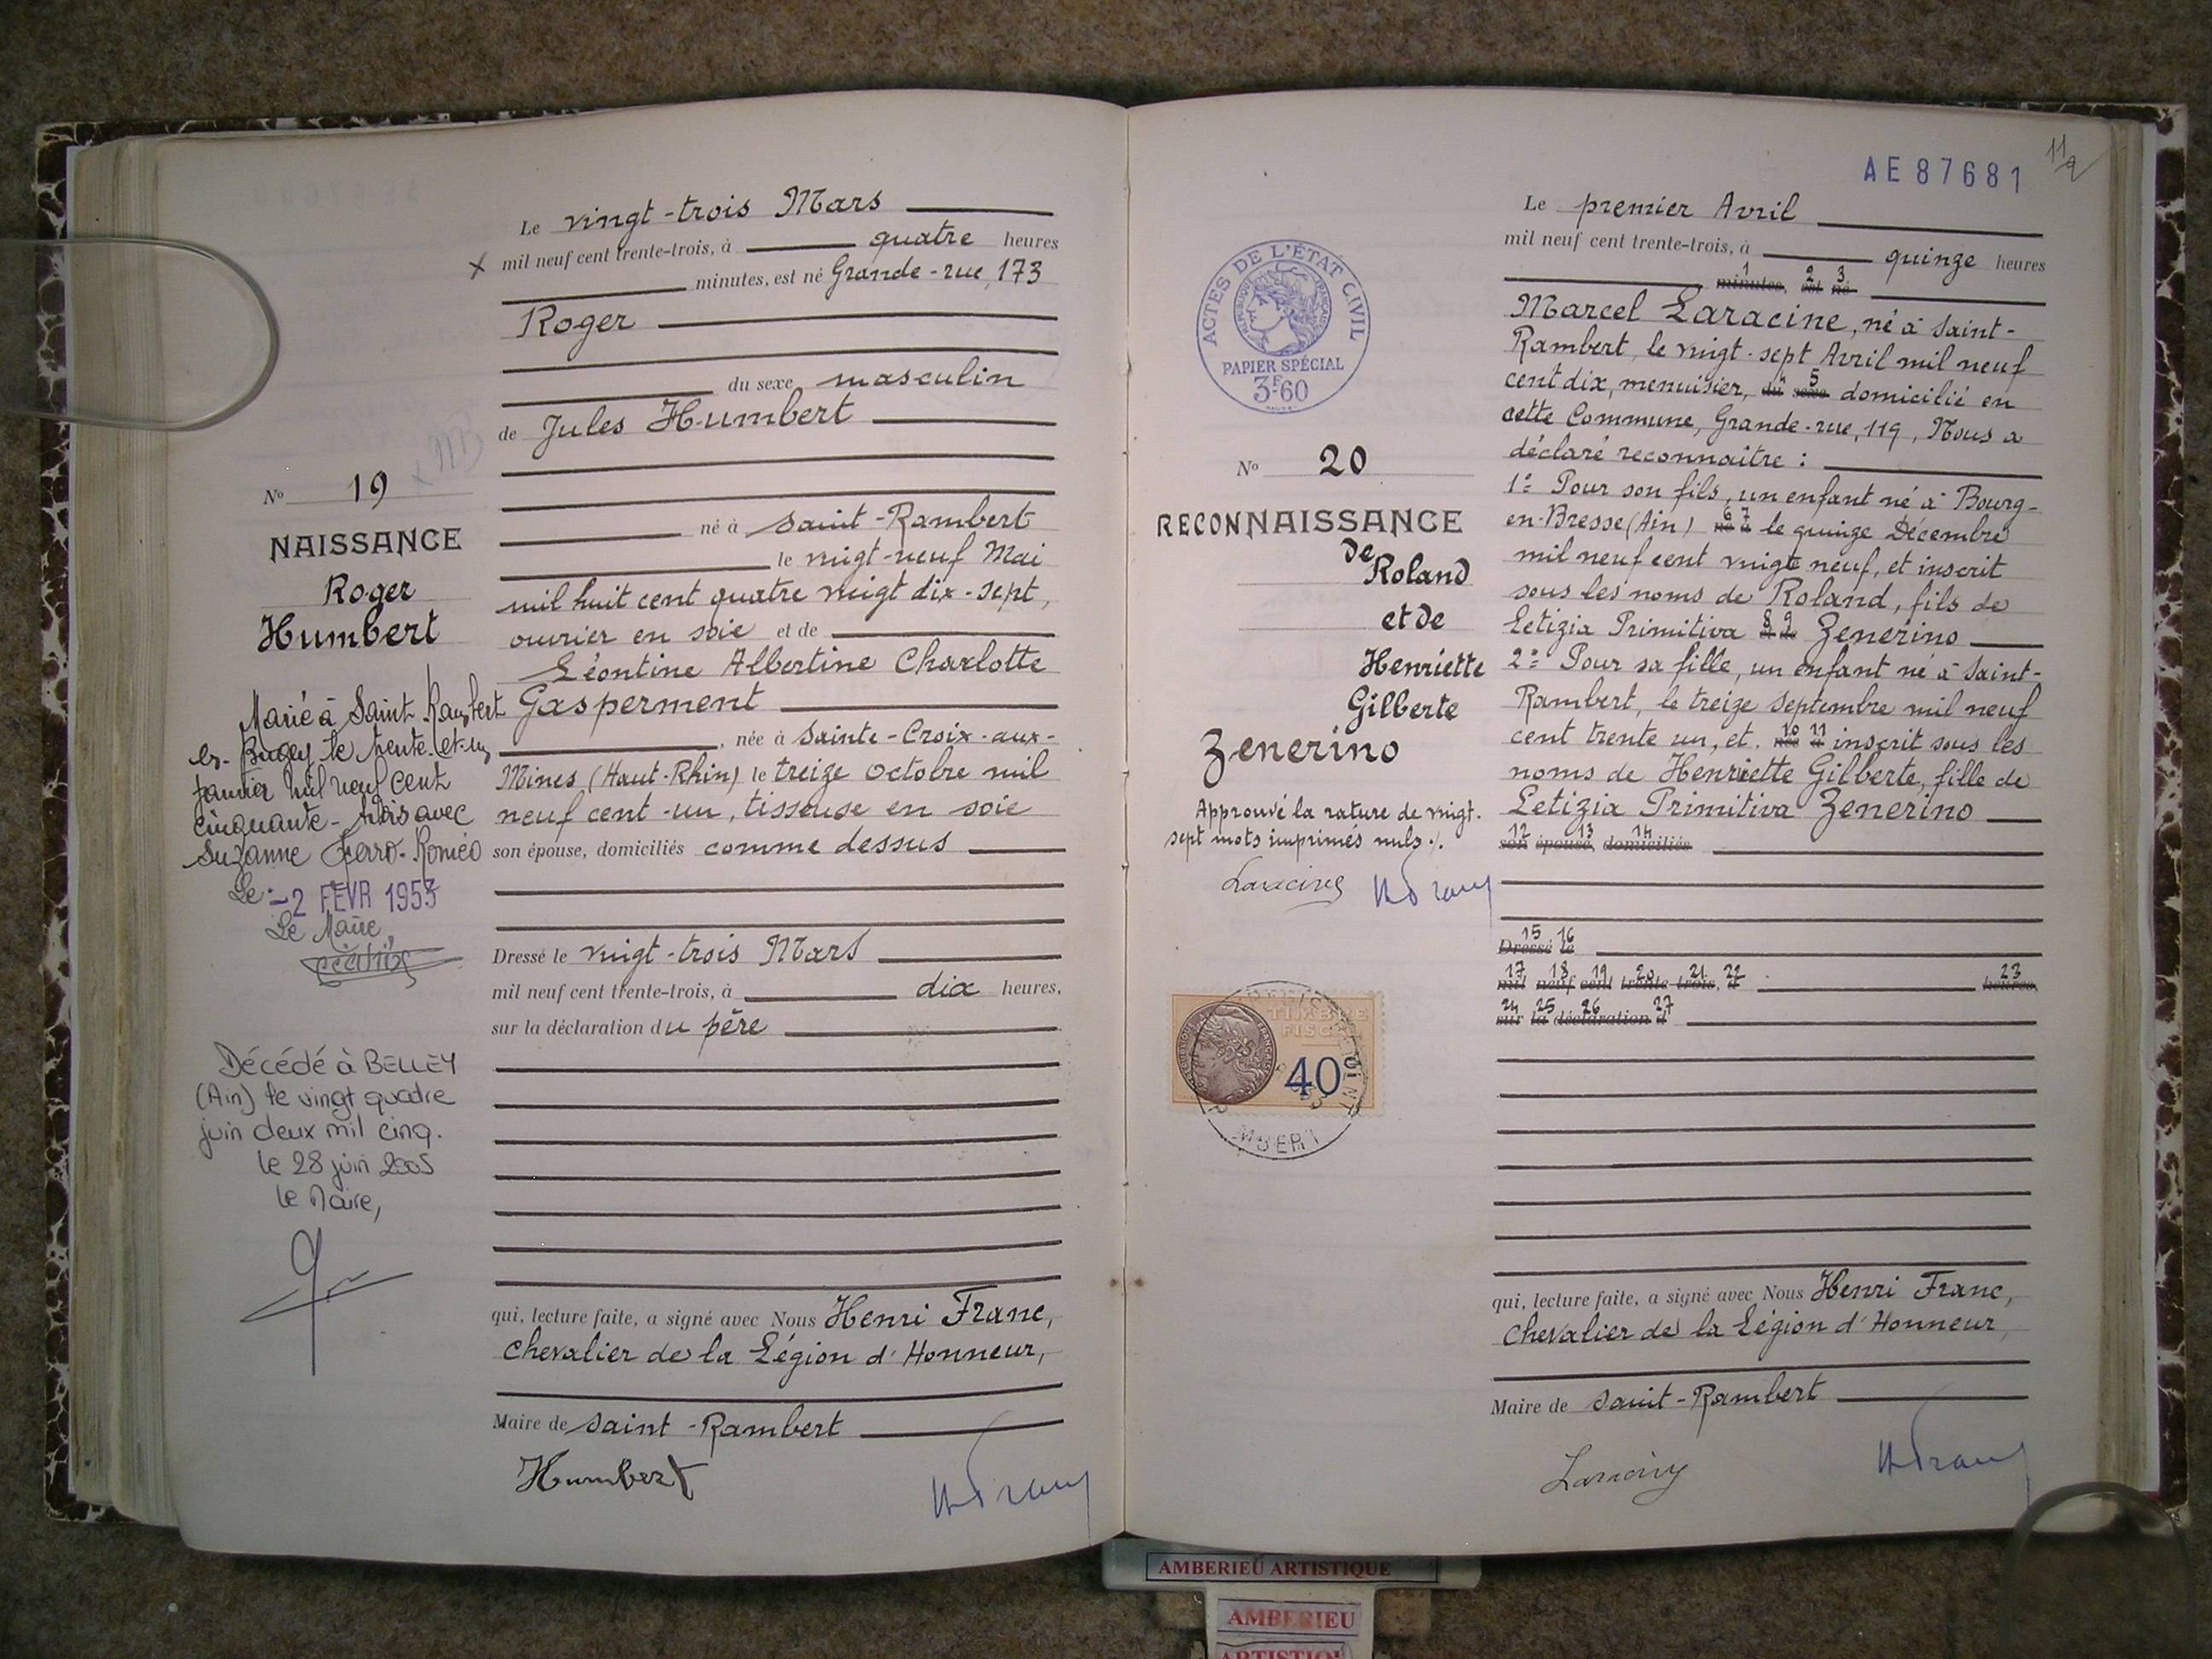 Le vingt-trois Mars
mil neuf cent trente-trois, à quatre heures
minutes, est né Grande-rue, 173
Roger
du sexe masculin
de Jules Humbert
né à Saint-Rambert
le vingt-neuf Mai
mil huit cent quatre vingt dix-sept,
ouvrier en soie et de
Léontine Albertine Charlotte
Gasperment
, née à Sainte-Croix-aux-
Mines (Haut-Rhin) le treize Octobre mil
neuf cent-un, tisseuse en soie
son épouse, domiciliés comme dessus
Dressé le vingt-trois Mars
mil neuf cent trente-trois, à dix heures,
sur la déclaration du père
qui, lecture faite, a signé avec Nous Henri Franc,
Chevalier de la Légion d'Honneur,
Maire de Saint-Rambert
Humbert
No 19
NAISSANCE
Roger
Humbert
Marié à Saint Rambert
en-Bugey le trente-et-un
janvier mil neuf cent
cinquante-trois avec
Suzanne Ferro-Roméo
Le -2 FEVR 1953
Le Maire,
Décédé à BELLEY
(Ain) le vingt quatre
juin deux mil cinq.
le 28 juin 2005
Le Maire,
AE87681
11/2
Le premier Avril
mil neuf cent trente-trois, à quinze heures
1 2 3
minutes, est né
Marcel Laracine, né à Saint-
Rambert, le vingt-sept Avril mil neuf
cent dix, menuisier, du sexe 5 domicilié en
cette Commune, Grande-rue, 119, Nous a
déclaré reconnaître :
1º Pour son fils, un enfant né à Bourg-
en-Bresse (Ain) 6 7 né à le quinze Décembre
mil neuf cent vingt neuf, et inscrit
sous les noms de Roland, fils de
Letizia Primitiva 8 9 et de Zenerino
2º Pour sa fille, un enfant né à Saint-
Rambert, le treize Septembre mil neuf
cent trente un, et 10 11 née à inscrit sous les
noms de Henriette Gilberte, fille de
Letizia Primitiva Zenerino
12 13 14
son épouse, domiciliés
15 16
Dressé le
17 18 19 20 21 22 23
mil neuf cent trente-trois, à heures,
24 25 26 27
sur la déclaration d
qui, lecture faite, a signé avec Nous Henri Franc,
Chevalier de la Légion d'Honneur,
Maire de Saint-Rambert
Laracine
ACTES DE L'ÉTAT CIVIL
RÉPUBLIQUE FRANÇAISE
PAPIER SPÉCIAL
3F60
No 20
RECONNAISSANCE
de
Roland
et de
Henriette
Gilberte
Zenerino
Approuvé la rature de vingt-
sept mots imprimés nuls ./.
Laracine
TIMBRE
FISCAL
40
AMBERIEU ARTISTIQUE
AMBERIEU
ARTISTIQUE